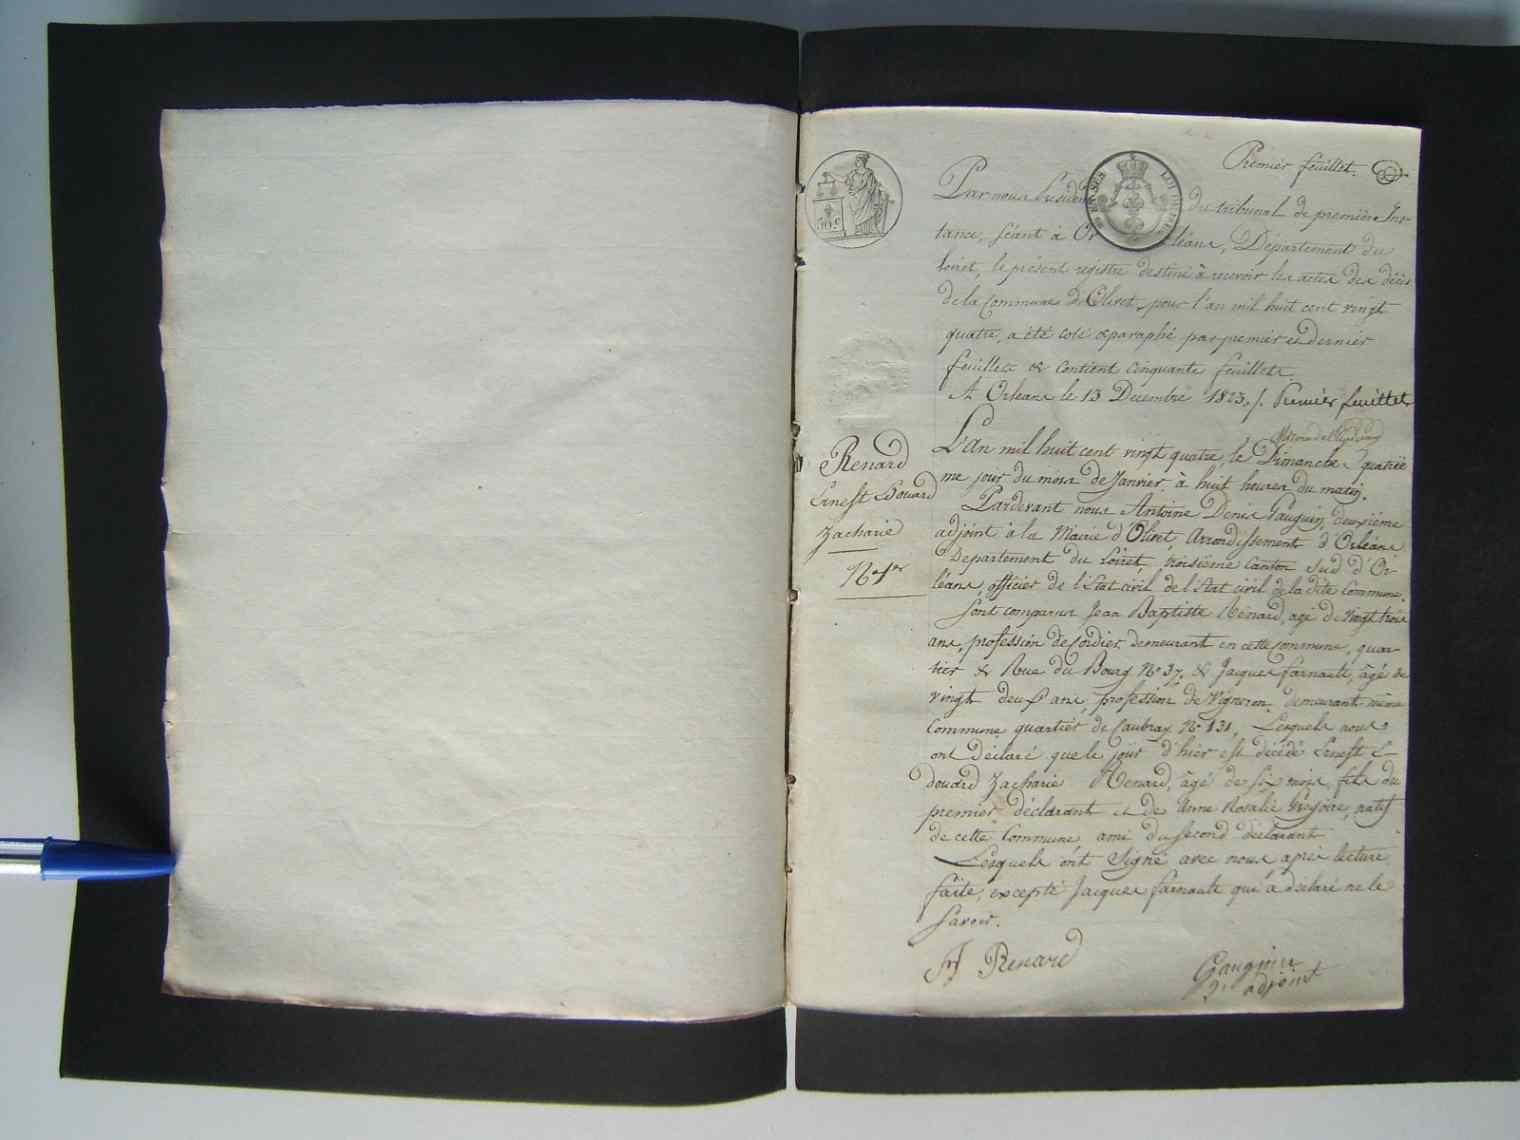 Premier feuillet.
Par nous Président du tribunal de première Ins-
tance, séant à Orléans, Département du
Loiret, le présent registre destiné à recevoir les actes des décès
de la Commune d'Olivet, pour l'an mil huit cent vingt
quatre, a été coté & paraphé par premier et dernier
feuillets & contient cinquante feuillets.
A Orléans le 13 Décembre 1823. /. Premier feuillet
50 c.
Renard
Ernest Edouard
Zacharie
N 1er
L'An mil huit cent vingt quatre, le Dimanche quatriè
me jour du mois de Janvier à huit heures du matin.
Pardevant nous Antoine Denis Gauguin, deuxième
adjoint à la Mairie d'Olivet Arrondissement d'Orléans
Departement du Loiret, troisième Canton Sud d'Or-
léans, officier de l'Etat civil de l'Etat civil de la dite Commune.
Sont comparus Jean Baptiste Renard, agé de vingt trois
ans, profession de Cordier, demeurant en cette commune, quar-
tier & Rue du Bourg No 37, & Jacques farnault, âgé de
vingt deux ans, profession de Vigneron, demeurant même
Commune quartier de Caubray No 131, Lesquels nous
ont déclaré que le jour d'hier est décédé Ernest E-
douard Zacharie Renard, âgé de six mois, fils du
premier déclarant et de Anne Rosalie Grégoire, natif
de cette Commune ami du second déclarant
Lesquels ont Signé avec nous après lecture
faite, excepté Jacques farnault qui a déclaré ne le
Savoir.
Renard
Gauguin
2e adjoint